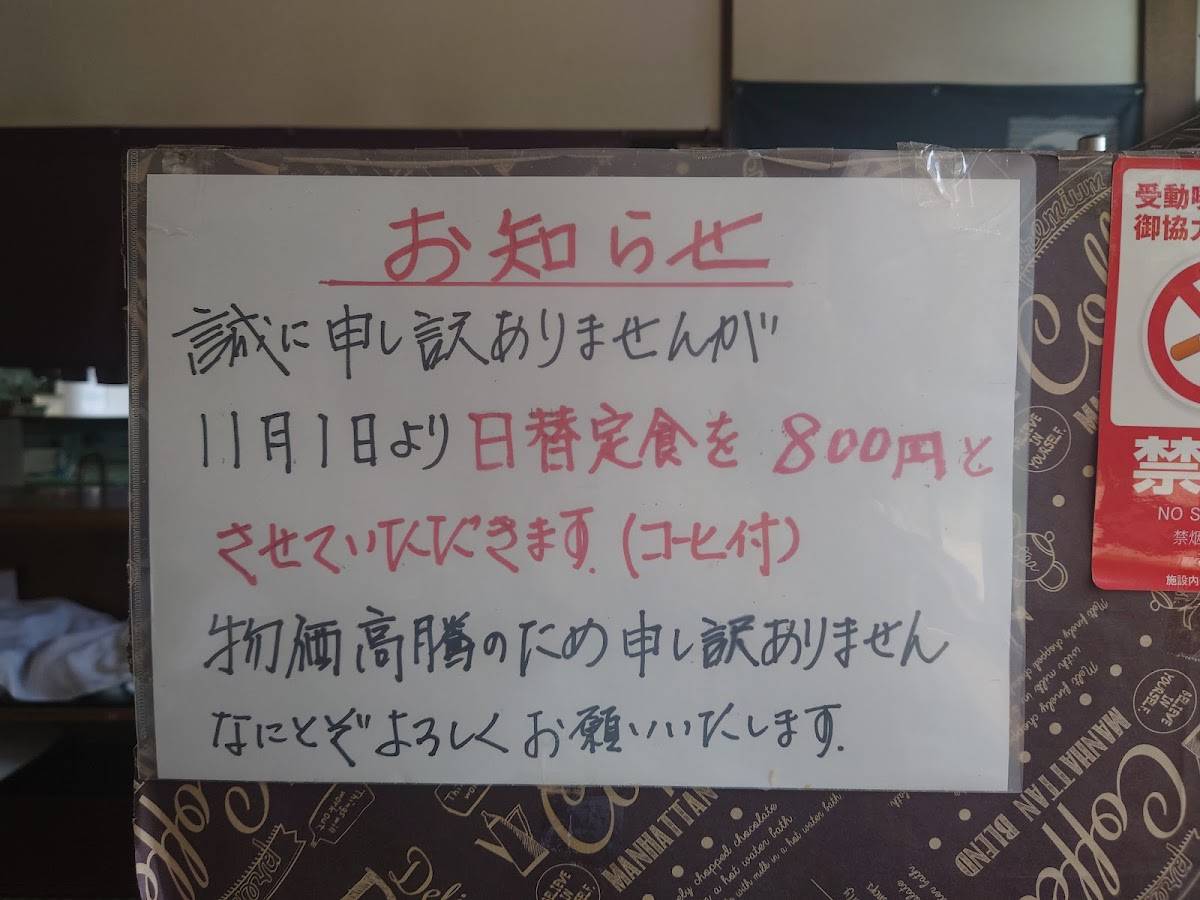 お知らせ
誠に申し訳ありませんが
11月1日より日替定食を800円と
させていただきます.(コーヒ付)
物価高騰のため申し訳ありません
なにとぞよろしくお願いいたします.
受動
御協
禁
NO S
禁煙
施設内
Coffee
MANHATTAN BLEND
BELIEVE IN YOURSELF
Melt finely chopped
with milk in a hot
BELIEVE IN YOURSELF
MANHATTAN
finely chopped chocolate
with milk in a hot water bath